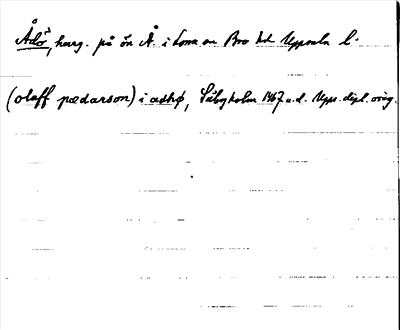 Ådö, herrg. på ön Å i Lossa sn Bro hd Uppsala l.
(olaff pædarson) i adhø, Säbyholm 1467 u.d. Upps. dipl. orig.